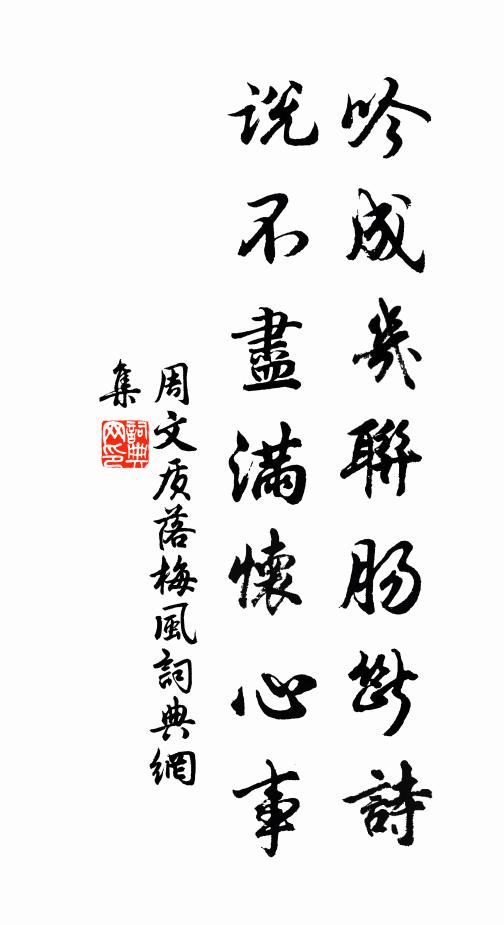 吟成幾聯肠斷詩
说不盡滿懷心事
周文质落梅風詞典網
集
詞典
网印